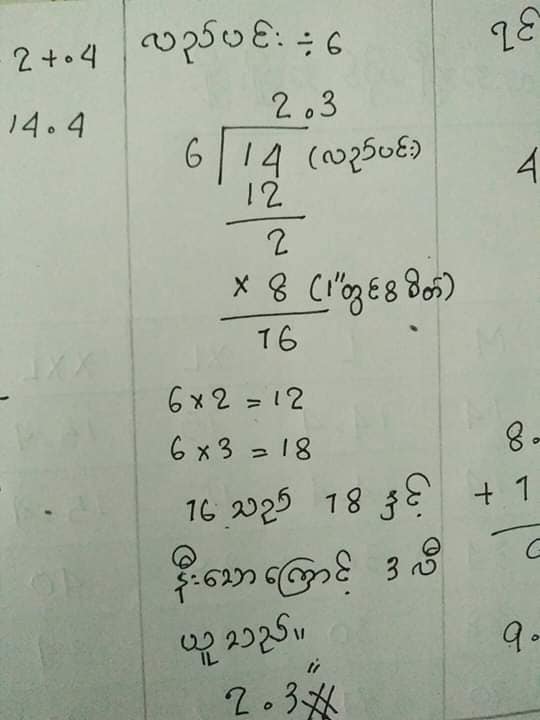 2+.4
14.4
လည်ပင်း ÷ 6
2.3
6 14 (လည်ပင်း)
12
2
× 8 (1"တွင် ၈ စိတ်)
16
6 × 2 = 12
6 × 3 = 18
16 သည် 18 နှင့်
နီးသောကြောင့် 3 လီ
ယူသည်။
2.3"
ရင်
4
8.
+ 1
9.